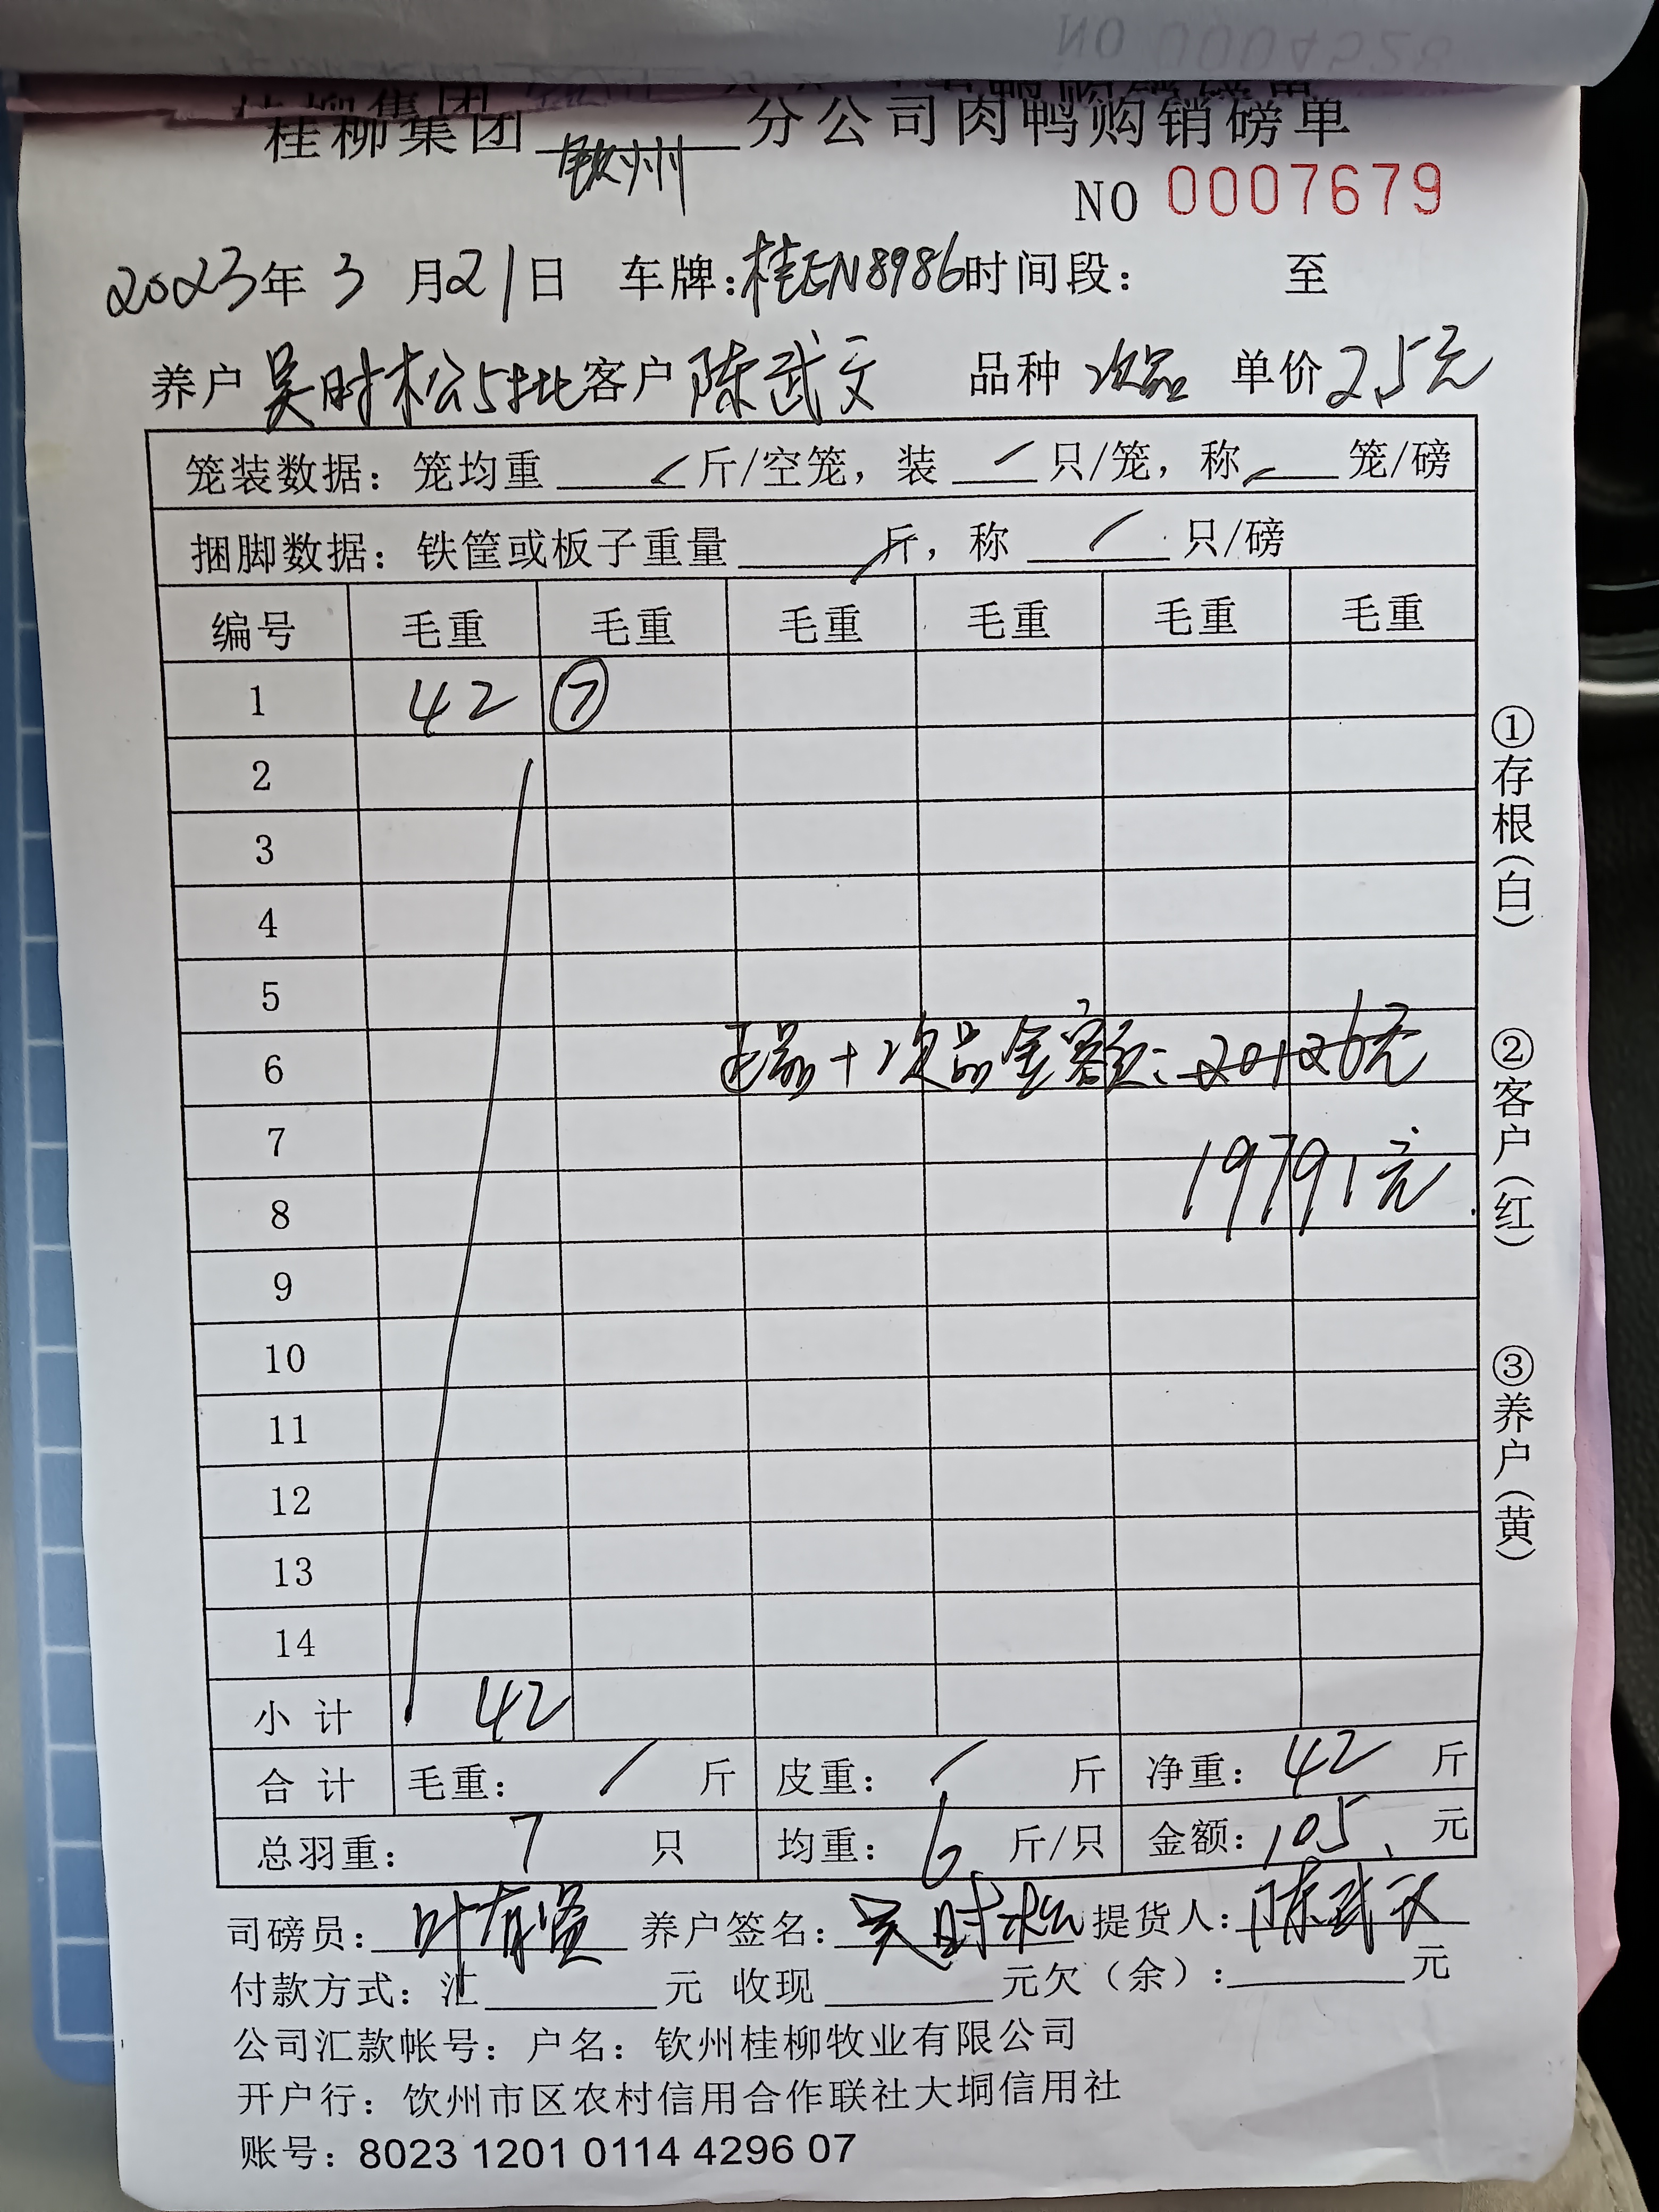 桂柳集团钦州分公司肉鸭购销磅单
NO 0007679
2023年 3 月21日 车牌:桂EN8986时间段: 至
养户 吴时松5批 客户 陈武文 品种 次品 单价 2.5元
笼装数据: 笼均重 / 斤/空笼, 装 / 只/笼, 称 / 笼/磅
捆脚数据: 铁筐或板子重量 / 斤, 称 / 只/磅
编号 毛重 毛重 毛重 毛重 毛重 毛重
1 42 ⑦
2
3
4
5
6 正品+次品金额: 20126元
7
19791元
8
9
10
11
12
13
14
小计 42
合计 毛重: / 斤 皮重: / 斤 净重: 42 斤
总羽重: 7 只 均重: 6 斤/只 金额: 105. 元
司磅员: 叶有贤 养户签名: 吴时松 提货人: 陈武文
付款方式: 汇 元 收现 元欠(余): 元
公司汇款帐号: 户名: 钦州桂柳牧业有限公司
开户行: 钦州市区农村信用合作联社大垌信用社
账号: 8023 1201 0114 4296 07
①存根(白)
②客户(红)
③养户(黄)